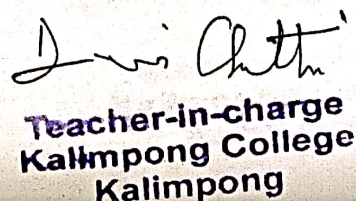 Teacher-in-charge
Kalimpong College
Kalimpong